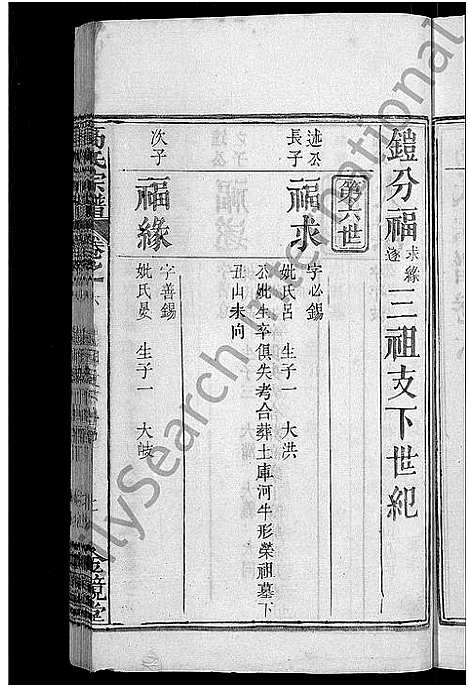 鎧分福求緣遂三祖支下世紀
第六世
述丕長子
福求
字必錫
妣氏呂 生子一 大洪
丕妣生卒俱失考合葬土庫河牛形榮祖墓下
丑山未向
次子
福緣
字善錫
妣氏晏 生子一 大歧
高氏宗譜
卷之一
金鏡堂
ilySearch International